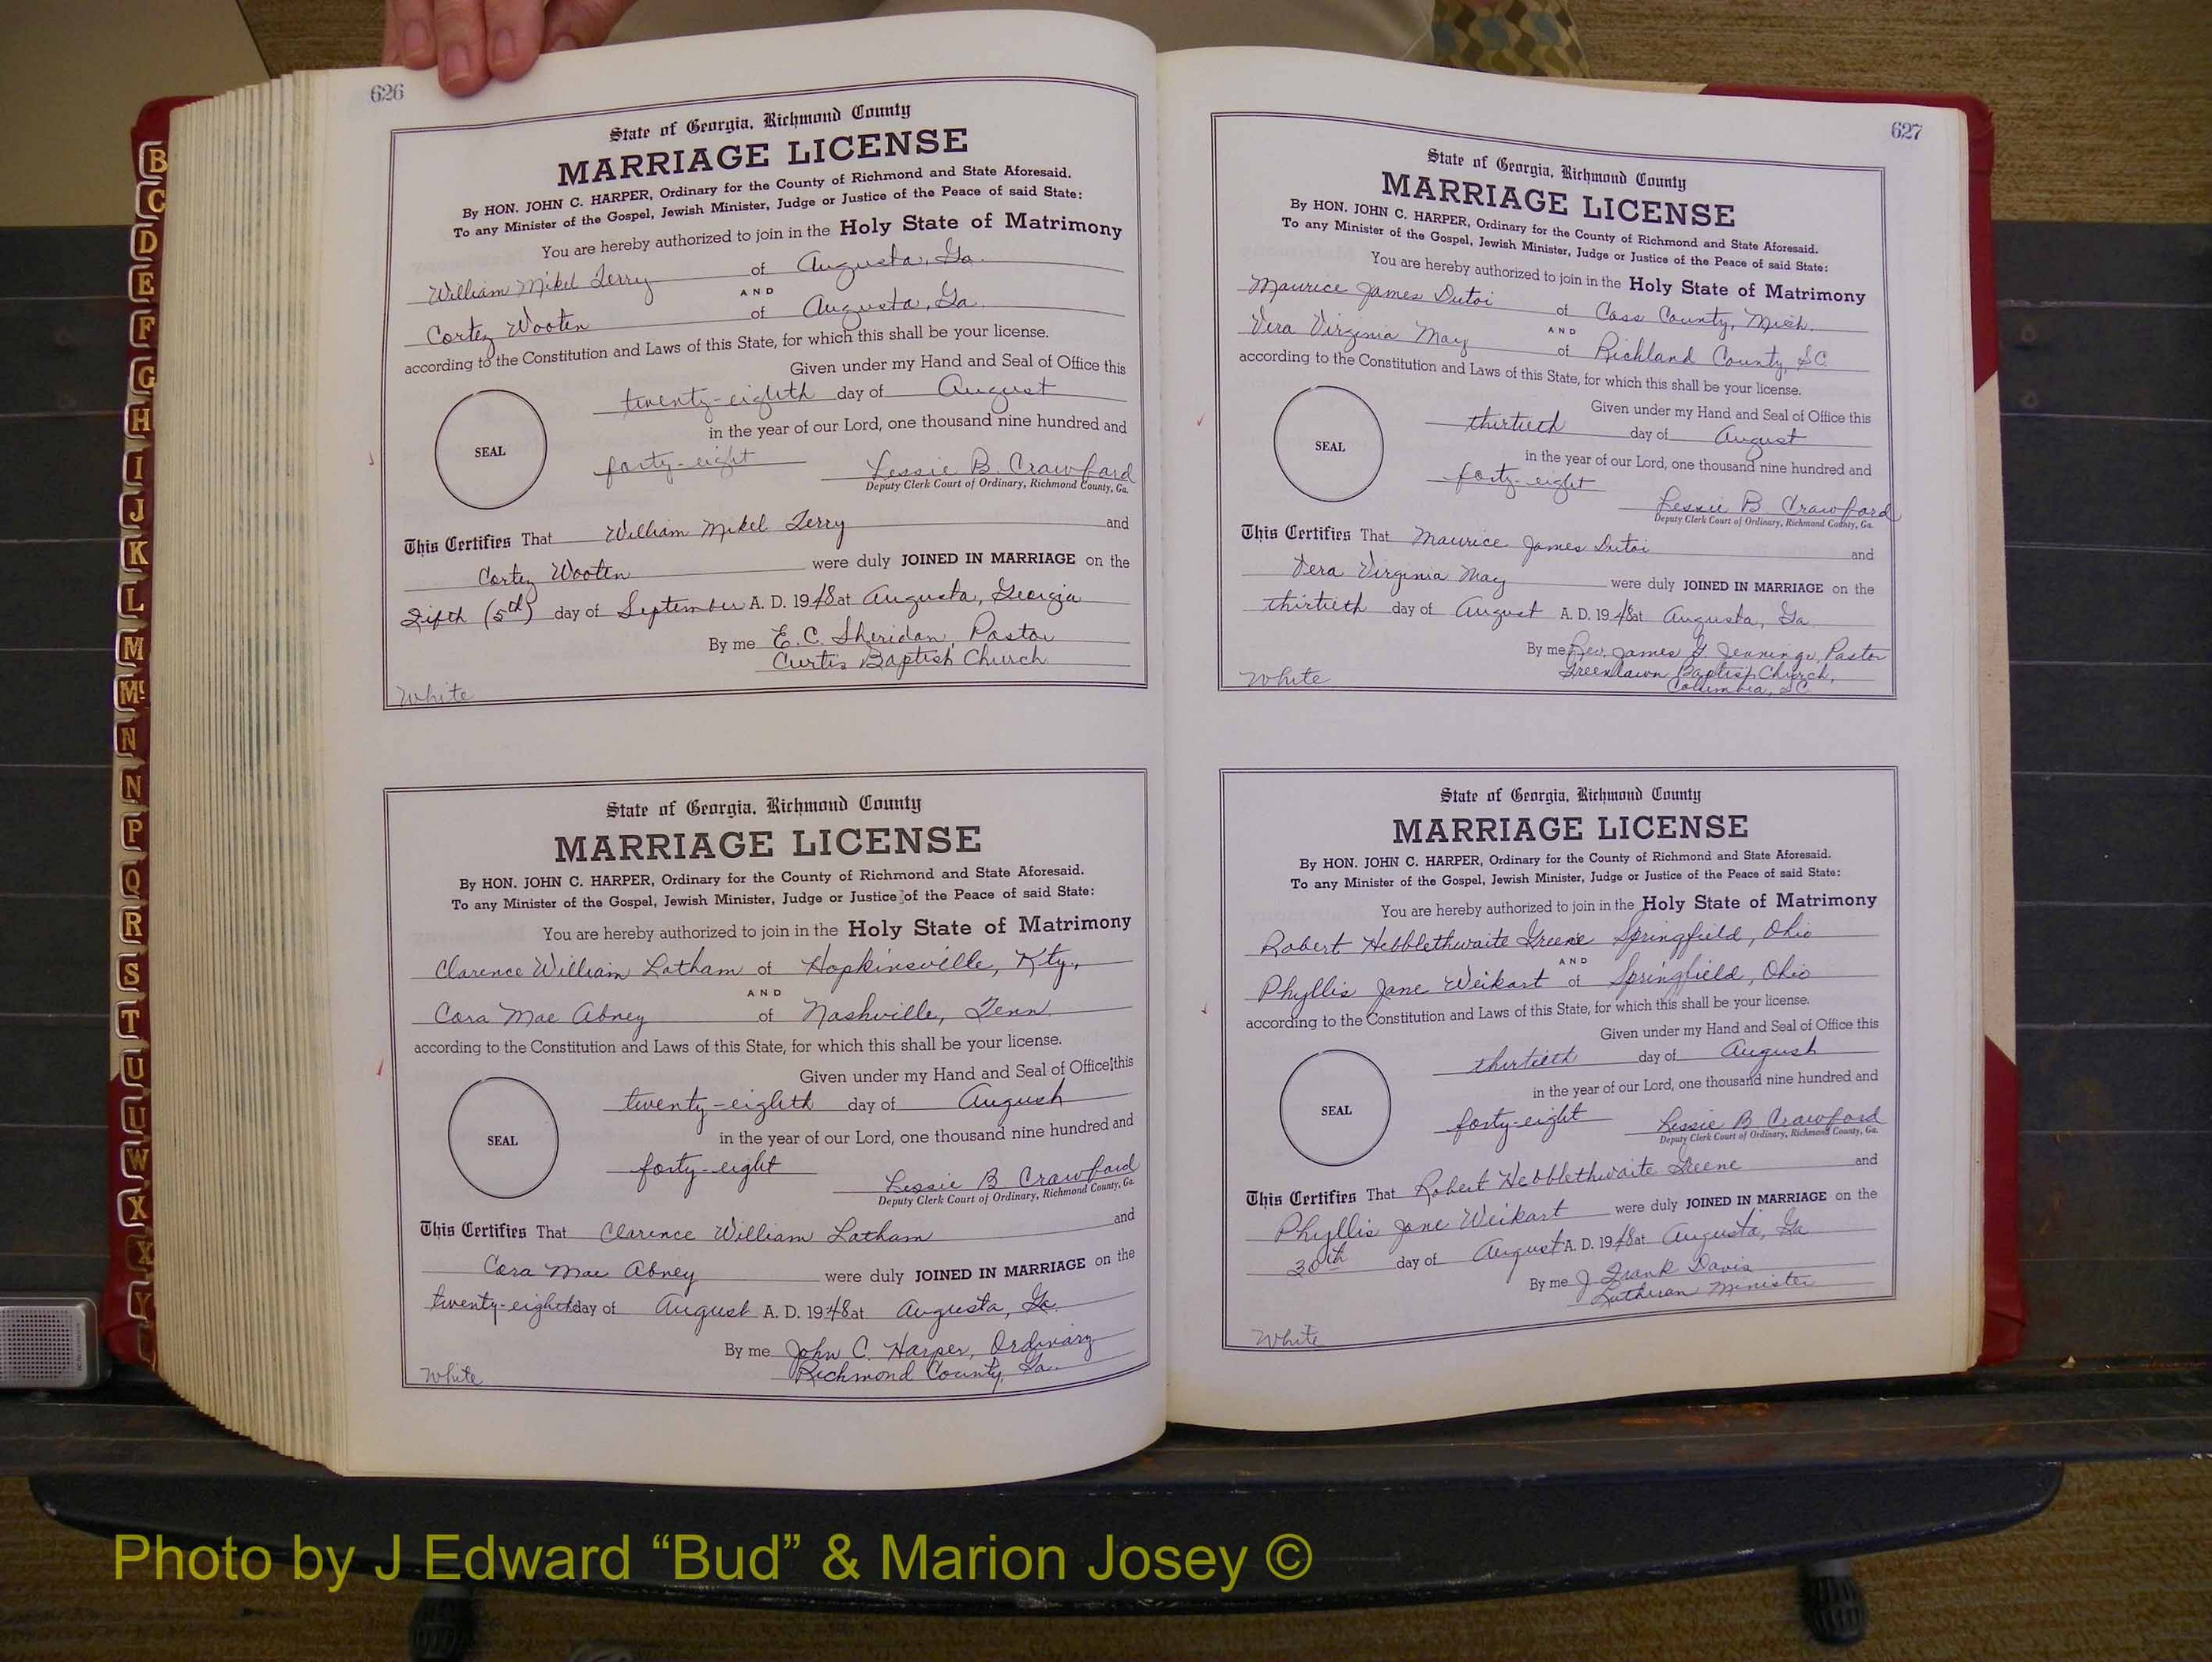 B
C
D
E
F
G
H
I
J
K
L
M
Mc
N
N
P
Q
R
S
T
U
U
W
X
X
Y
626
State of Georgia, Richmond County
MARRIAGE LICENSE
By HON. JOHN C. HARPER, Ordinary for the County of Richmond and State Aforesaid.
To any Minister of the Gospel, Jewish Minister, Judge or Justice of the Peace of said State:
You are hereby authorized to join in the Holy State of Matrimony
William Mikel Terry of Augusta, Ga.
AND
Cortez Wooten of Augusta, Ga.
according to the Constitution and Laws of this State, for which this shall be your license.
Given under my Hand and Seal of Office this
twenty-eighth day of August
in the year of our Lord, one thousand nine hundred and
SEAL
forty-eight Lessie B. Crawford
Deputy Clerk Court of Ordinary, Richmond County, Ga.
This Certifies That William Mikel Terry and
Cortez Wooten were duly JOINED IN MARRIAGE on the
Fifth (5th) day of September A. D. 1948 at Augusta, Georgia
By me E. C. Sheridan, Pastor
Curtis Baptist Church
White
State of Georgia, Richmond County
MARRIAGE LICENSE
By HON. JOHN C. HARPER, Ordinary for the County of Richmond and State Aforesaid.
To any Minister of the Gospel, Jewish Minister, Judge or Justice of the Peace of said State:
You are hereby authorized to join in the Holy State of Matrimony
Clarence William Latham of Hopkinsville, Kty.,
AND
Cora Mae Abney of Nashville, Tenn.
according to the Constitution and Laws of this State, for which this shall be your license.
Given under my Hand and Seal of Office this
twenty-eighth day of August
in the year of our Lord, one thousand nine hundred and
SEAL
forty-eight Lessie B. Crawford
Deputy Clerk Court of Ordinary, Richmond County, Ga.
This Certifies That Clarence William Latham and
Cora Mae Abney were duly JOINED IN MARRIAGE on the
twenty-eighth day of August A. D. 1948 at Augusta, Ga.
By me John C. Harper, Ordinary
Richmond County, Ga.
White
627
State of Georgia, Richmond County
MARRIAGE LICENSE
By HON. JOHN C. HARPER, Ordinary for the County of Richmond and State Aforesaid.
To any Minister of the Gospel, Jewish Minister, Judge or Justice of the Peace of said State:
You are hereby authorized to join in the Holy State of Matrimony
Maurice James Dutoi of Cass County, Mich.
AND
Vera Virginia May of Richland County, S.C.
according to the Constitution and Laws of this State, for which this shall be your license.
Given under my Hand and Seal of Office this
thirtieth day of August
in the year of our Lord, one thousand nine hundred and
SEAL
forty-eight Lessie B. Crawford
Deputy Clerk Court of Ordinary, Richmond County, Ga.
This Certifies That Maurice James Dutoi and
Vera Virginia May were duly JOINED IN MARRIAGE on the
thirtieth day of August A. D. 1948 at Augusta, Ga.
By me Rev. James Jennings, Pastor
Greenlawn Baptist Church,
Columbia, S.C.
White
State of Georgia, Richmond County
MARRIAGE LICENSE
By HON. JOHN C. HARPER, Ordinary for the County of Richmond and State Aforesaid.
To any Minister of the Gospel, Jewish Minister, Judge or Justice of the Peace of said State:
You are hereby authorized to join in the Holy State of Matrimony
Robert Hebblethwaite Greene Springfield, Ohio
AND
Phyllis Jane Weikart of Springfield, Ohio
according to the Constitution and Laws of this State, for which this shall be your license.
Given under my Hand and Seal of Office this
thirtieth day of August
in the year of our Lord, one thousand nine hundred and
SEAL
forty-eight Lessie B. Crawford
Deputy Clerk Court of Ordinary, Richmond County, Ga.
This Certifies That Robert Hebblethwaite Greene and
Phyllis Jane Weikart were duly JOINED IN MARRIAGE on the
30th day of August A. D. 1948 at Augusta, Ga
By me J. Frank Davis
Lutheran Minister
White
Photo by J Edward “Bud” & Marion Josey ©